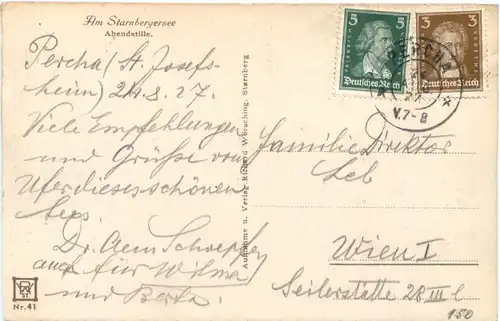 Am Starnbergersee
Abendstille.
Percha (St. Josefs-
heim) 24.8.27.
Viele Empfehlungen
und Grüße vom
Ufer dieses schönen
Sees.
Dr.
auch für Wilma
und Berta.
Nr. 41
Aufnahme u. Verlag Richard Wörsching, Starnberg
5 5
Deutsches Reich
3 3
Deutsches Reich
V.7-8
Familie Direktor
Wien I
Seilerstätte 28 III
150